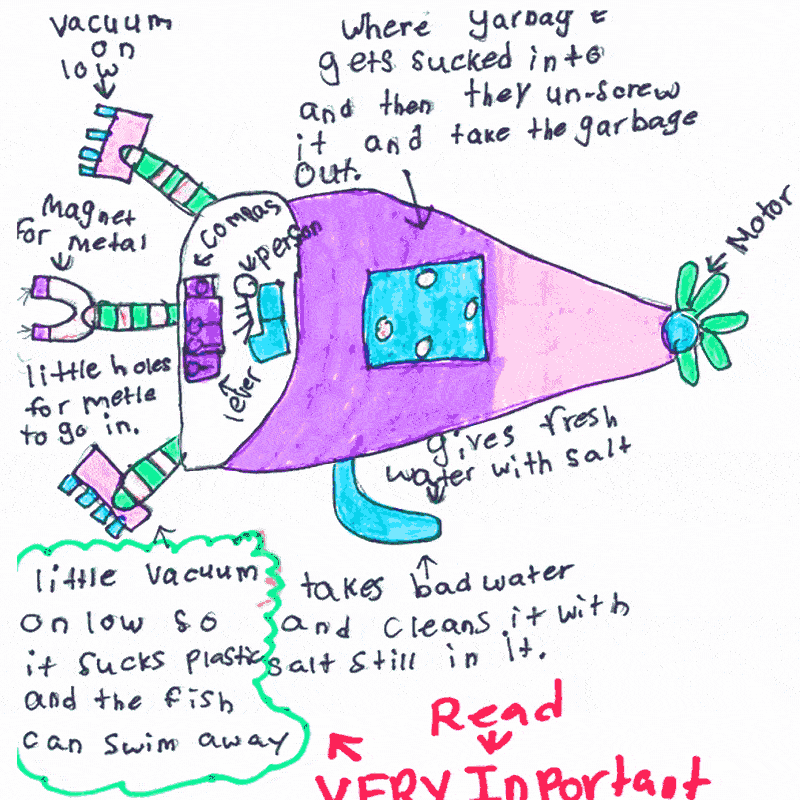 vacuum
on
low
where garbage
gets sucked into
and then they un-screw
it and take the garbage
out.
Magnet
for metal
compas
person
Motor
little holes
for metle
to go in.
lever
gives fresh
water with salt
little vacuum
on low so
it sucks plastic
and the fish
can swim away
takes bad water
and cleans it with
salt still in it.
Read
VERY Inportant